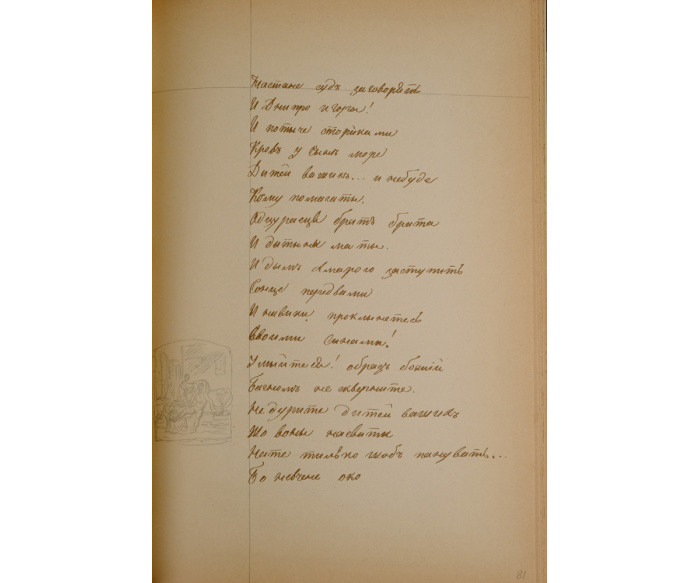 Настане судъ заговорятъ
И Днипро и горы!
И потыче сторіками
Кровъ у сынѣ море
Дитей вашихъ... и небуде
Кому помагаты.
Одцураецця братъ брата
И дытыны маты.
И дымъ хмарою заступить
Сонце передвами
И навики прокленетесь
Своими сынами!
Умыйтеся! образъ божій
Багномъ не скверните.
Недурите дитей вашихъ
Що воны насвити
Нате тилько щобъ пануватъ...
Бо невчене око
81